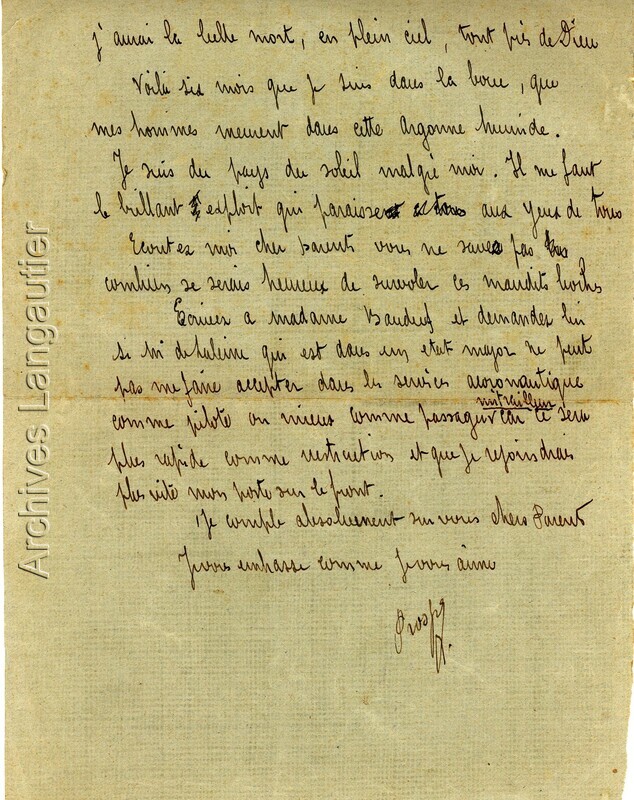 j'aurai la belle mort, en plein ciel, tout près de Dieu
Voila six mois que je suis dans la boue, que
mes hommes meurent dans cette Argonne humide.
Je suis du pays du soleil malgré moi. Il me faut
le brillant exploit qui paraisse aux yeux de tous
Ecoutez moi cher Parents vous ne savez pas
combien je serais heureux de survoler ces maudits boches
Ecrivez a madame et demandez lui
si Mr qui est dans un etat major ne peut
pas me faire accepter dans les services aeronautique
mitrailleur
comme pilote ou mieux comme passager car ce sera
plus rapide comme instruction et que je rejoindrais
plus vite mon poste sur le front.
Je compte absolument sur vous chers Parents
Je vous embrasse comme je vous aime
Archives Langautier